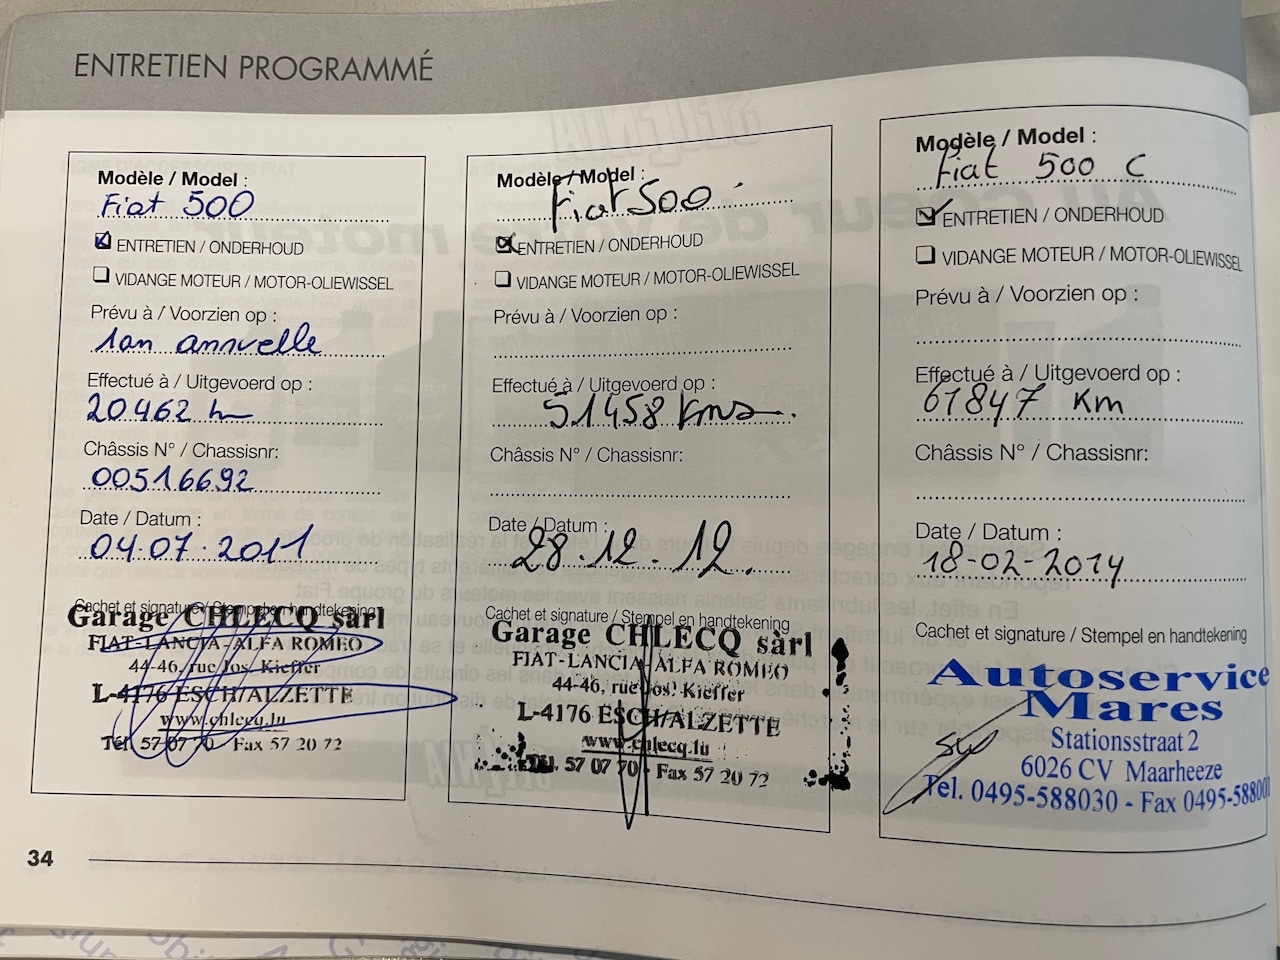 ENTRETIEN PROGRAMMÉ
Modèle / Model :
Fiat 500
ENTRETIEN / ONDERHOUD
VIDANGE MOTEUR / MOTOR-OLIEWISSEL
Prévu à / Voorzien op :
1an annuelle
Effectué à / Uitgevoerd op :
20462
Châssis N° / Chassisnr:
00516692
Date / Datum :
04.07.2011
Cachet et signature / Stempel en handtekening
Garage CHLECQ sàrl
FIAT-LANCIA-ALFA ROMEO
44-46, rue Jos. Kieffer
L-4176 ESCH/ALZETTE
www.chlecq.lu
Tél. 57 07 70 Fax 57 20 72
Modèle / Model :
Fiat 500
ENTRETIEN / ONDERHOUD
VIDANGE MOTEUR / MOTOR-OLIEWISSEL
Prévu à / Voorzien op :
Effectué à / Uitgevoerd op :
51458 Kms
Châssis N° / Chassisnr:
Date / Datum :
28.12.12.
Cachet et signature / Stempel en handtekening
Garage CHLECQ sàrl
FIAT-LANCIA-ALFA ROMEO
44-46, rue Jos. Kieffer
L-4176 ESCH/ALZETTE
www.chlecq.lu
Tél. 57 07 70 - Fax 57 20 72
Modèle / Model :
Fiat 500 C
ENTRETIEN / ONDERHOUD
VIDANGE MOTEUR / MOTOR-OLIEWISSEL
Prévu à / Voorzien op :
Effectué à / Uitgevoerd op :
61847 Km
Châssis N° / Chassisnr:
Date / Datum :
18-02-2014
Cachet et signature / Stempel en handtekening
Autoservice
Mares
Stationsstraat 2
6026 CV Maarheeze
Tel. 0495-588030 - Fax 0495-588001
34